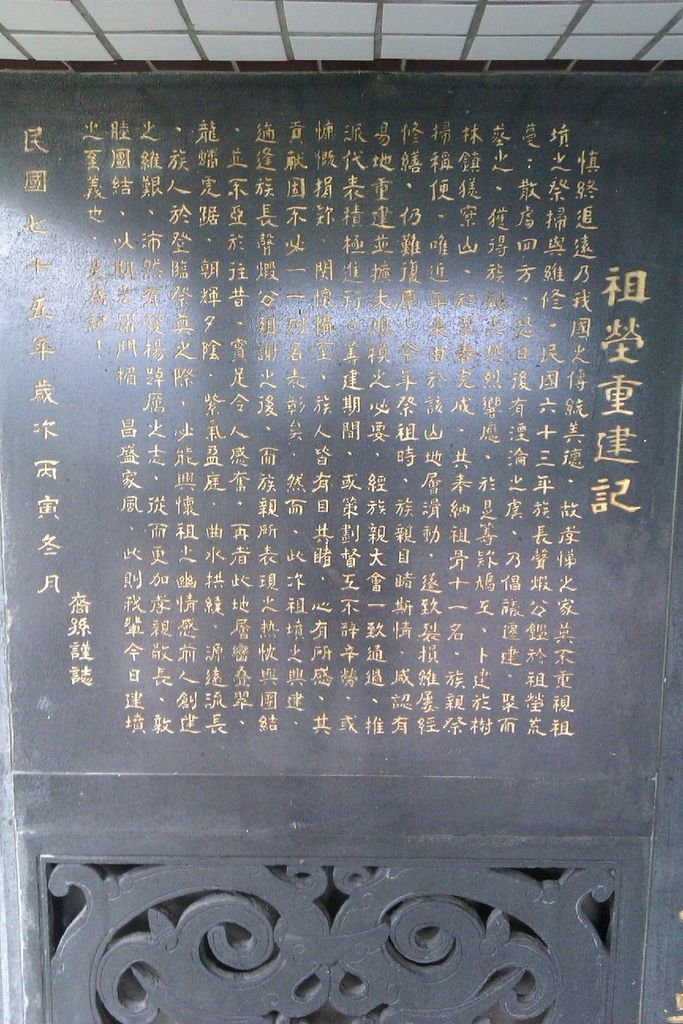 祖塋重建記
慎終追遠乃我國之傳統美德，故孝悌之家莫不重視祖
墳之祭掃與維修。民國六十三年族長聲煅公鑑於祖塋荒
蔓；散處四方，恐日後有湮淪之虞，乃倡議遷建，聚而
塋之，獲得族親忠熱烈響應，於是善款鳩至，卜建於樹
林鎮獇寮山，於翌春完成，共奉納祖骨十一名，族親祭
掃稱便。唯近年來由於該山地層滑動，遂致裂損雖屢經
修繕，仍難復原。今年祭祖時，族親目睹斯情，咸認有
易地重建並擴大規模之必要，經族親大會一致通過，推
派代表積極進行。籌建期間，或策劃督工不辭辛勞，或
慷慨捐款，關懷備至，族人皆有目共睹，心有所感，其
貢獻固不必一一列名表彰矣，然而，此次祖墳之興建，
適逢族長聲煅公徂謝之後，而族親所表現之熱忱與團結
，並不亞於往昔，實足令人感奮，再者此地層巒疊翠，
龍蟠虎踞，朝輝夕陰，紫氣盈庭，曲水拱繞，源遠流長
，族人於登臨祭奠之際，必能興懷祖之幽情感前人創建
之維艱，沛然有發揚踔厲之志，從而更加孝親敬長，敦
睦團結，以期光耀門楣，昌盛家風，此則我輩今日建墳
之至義也，是為記！
裔孫謹誌
民國七十五年歲次丙寅冬月